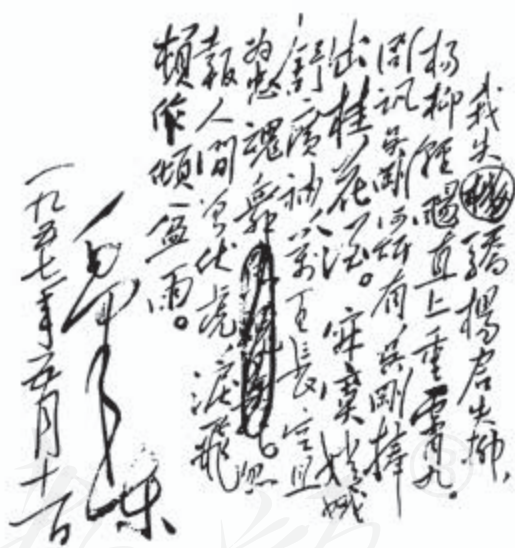 我失驕楊君失柳,
楊柳輕颺直上重霄九。
問訊吳剛何所有吳剛捧
出桂花酒。寂寞嫦娥
舒廣袖萬里長空且
為忠魂舞。忽
報人間曾伏虎淚飛
頓作傾盆雨。
毛澤東
一九五七年五月十一日